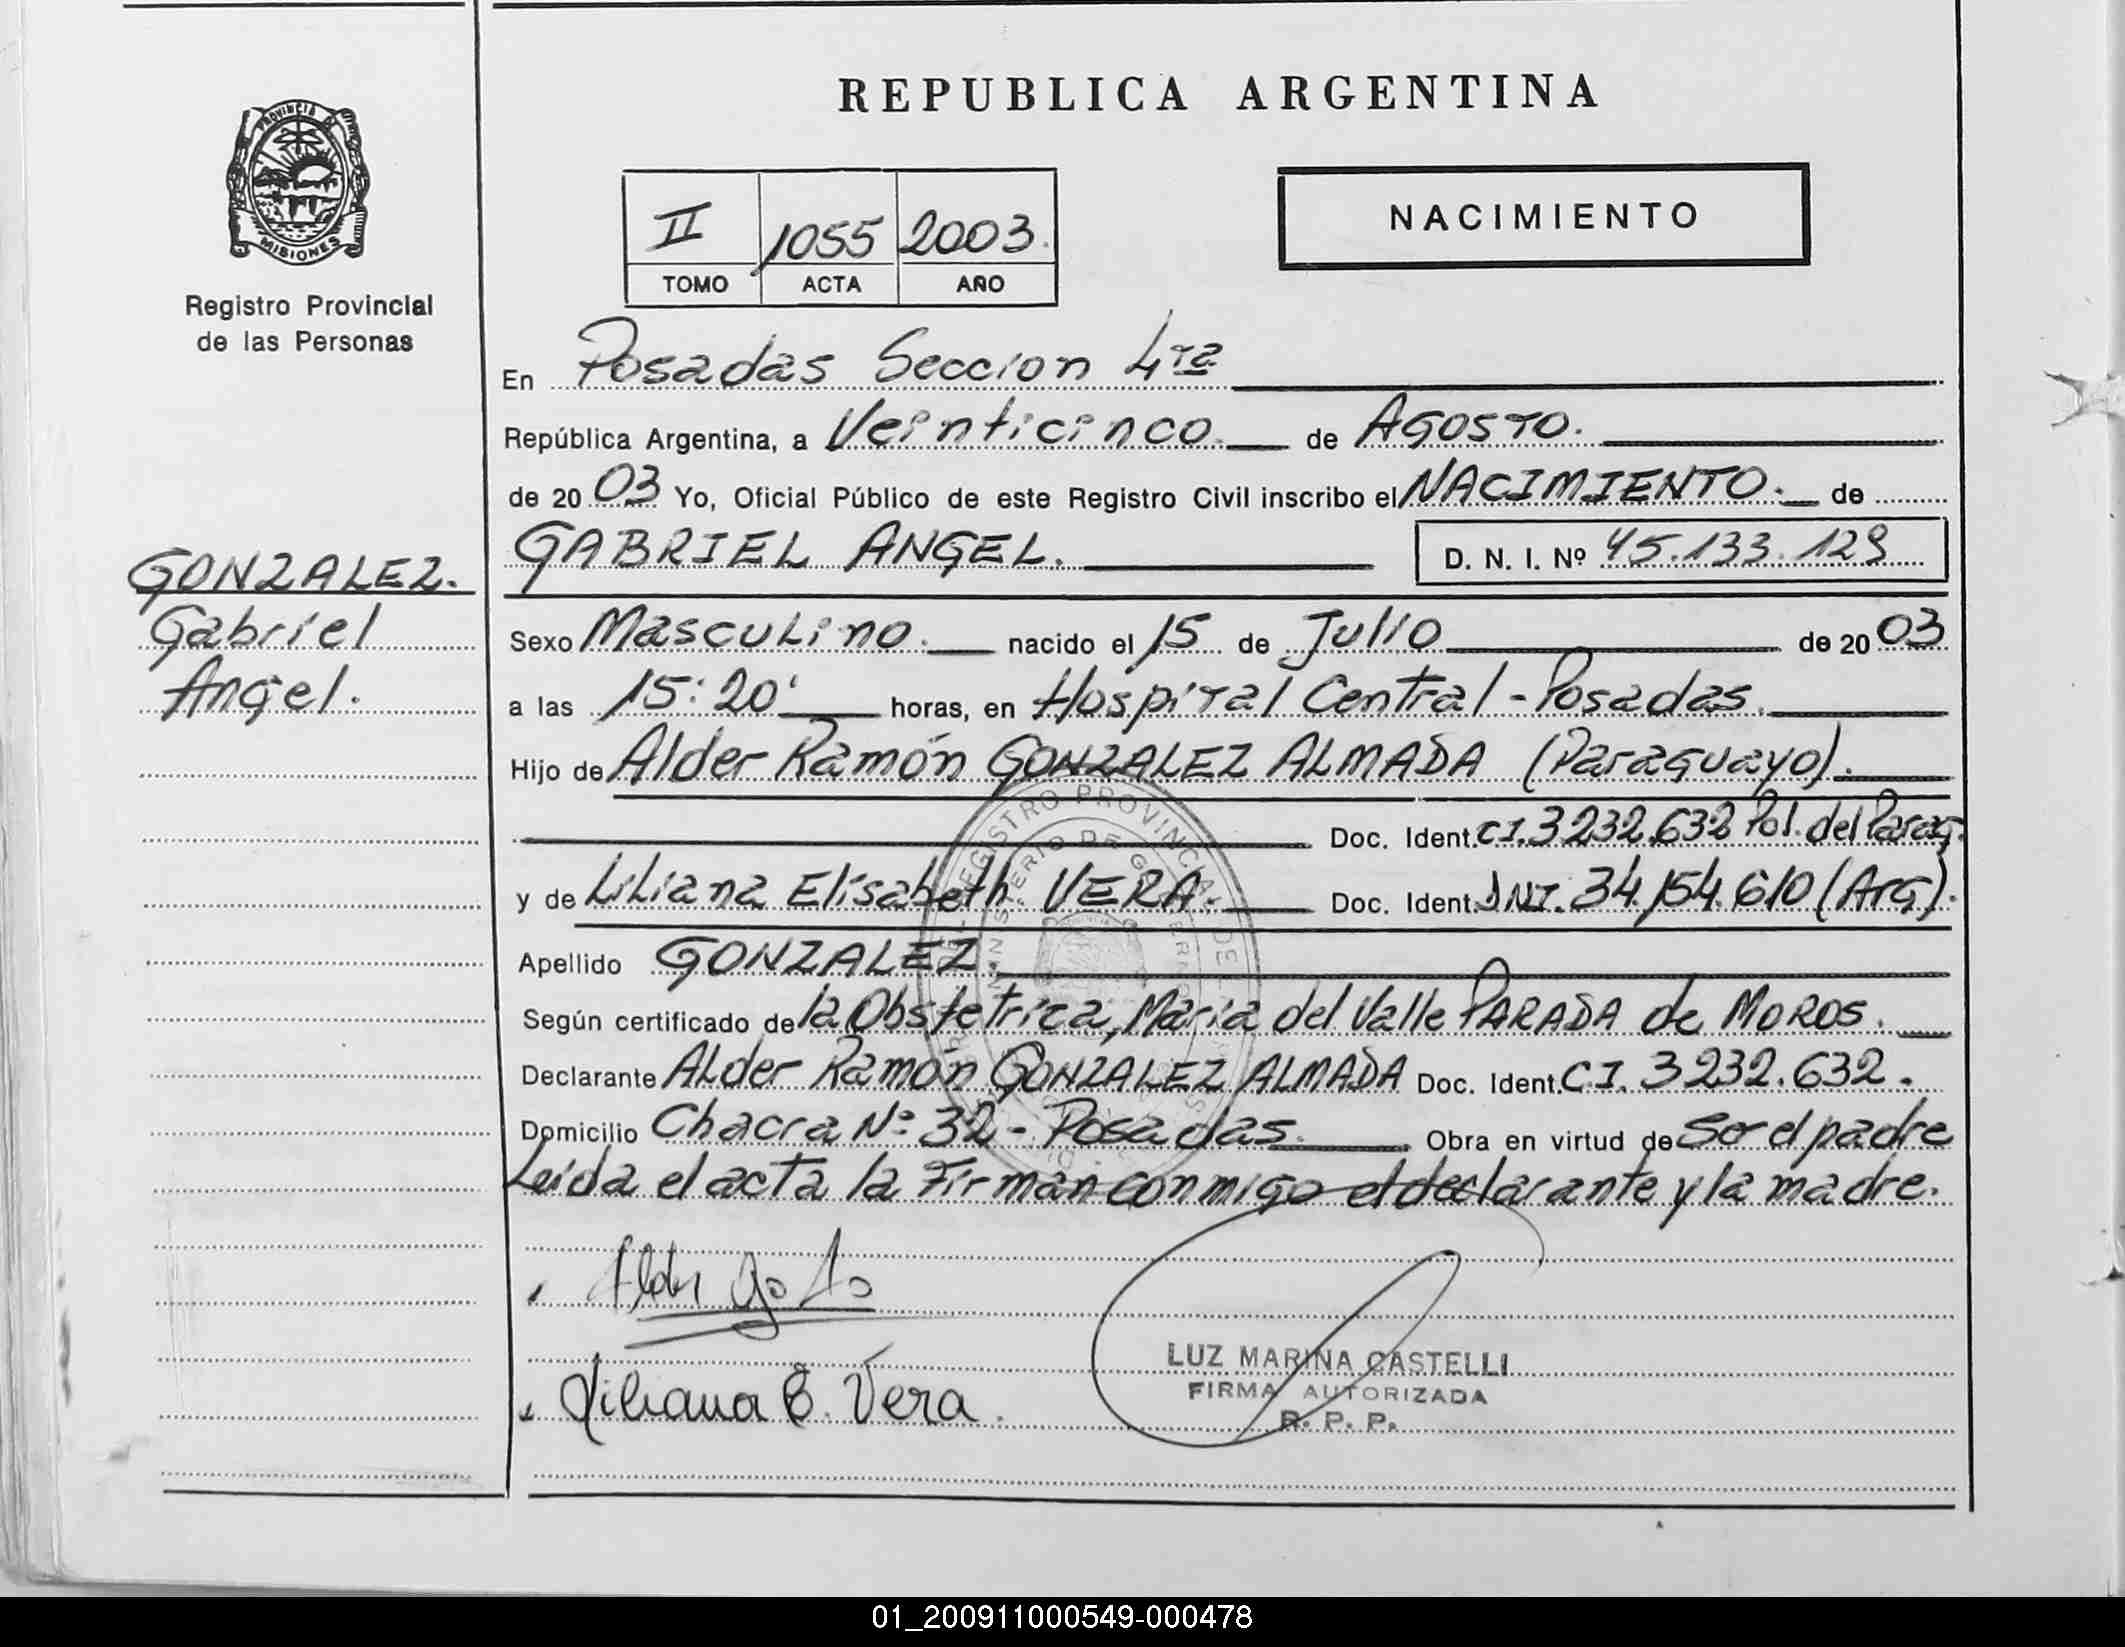 REPUBLICA ARGENTINA
PROVINCIA DE
MISIONES
Registro Provincial
de las Personas
II 1055 2003.
TOMO ACTA AÑO
NACIMIENTO
En Posadas Seccion 4ta
República Argentina, a Veinticinco. de Agosto.
de 20 03 Yo, Oficial Público de este Registro Civil inscribo el NACIMIENTO. de
GABRIEL ANGEL. D. N. I. Nº 45.133.129
GONZALEZ.
Gabriel
Angel.
Sexo Masculino. nacido el 15 de Julio de 20 03
a las 15:20' horas, en Hospital Central - Posadas.
Hijo de Alder Ramón GONZALEZ ALMADA (Paraguayo).
Doc. Ident. C.I. 3232.632 Pol. del Parag.
y de Liliana Elisabeth VERA. Doc. Ident. DNI. 34.154.610 (Arg).
Apellido GONZALEZ.
Según certificado de la Obstetrica, Maria del Valle PARADA de MOROS.
Declarante Alder Ramón GONZALEZ ALMADA Doc. Ident. C.I. 3232.632.
Domicilio Chacra Nº 32 - Posadas. Obra en virtud de Ser el padre
Leida el acta la Firman conmigo el declarante y la madre.
REGISTRO PROVINCIAL DE
MINISTERIO DE GOBIERNO
Liliana E. Vera.
LUZ MARINA CASTELLI
FIRMA AUTORIZADA
R. P. P.
01_200911000549-000478